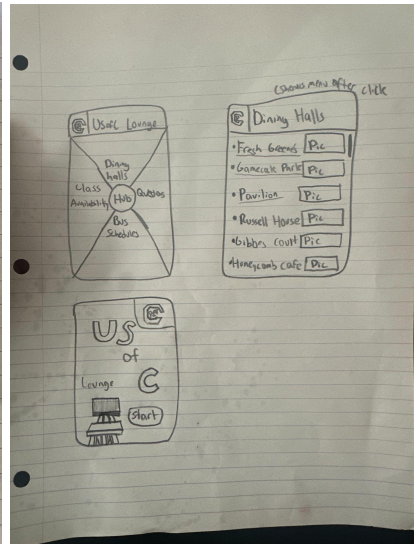 (shows menu after click
C USofC Lounge
Dining
halls
Class
Availability
Hub
Quotes
Bus
Schedules
C Dining Halls
•Fresh Greens Pic
•Gamecock Park Pic
•Pavilion Pic
•Russell House Pic
•Gibbes court Pic
•Honeycomb cafe Pic
C
US
of
C
Lounge
Start